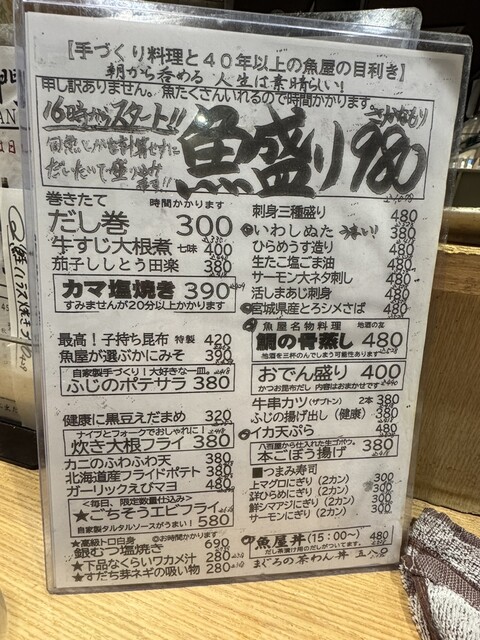 【手づくり料理と40年以上の魚屋の目利き】
朝から呑める 人生は素晴らしい!
申し訳ありません。魚たくさんいれるので時間かかります。
16時からスタート!!
さかなもり
魚盛り 980
巻きたて 時間かかります
だし巻 300
牛すじ大根煮 七味 40
茄子ししとう田楽 380
カマ塩焼き 390
すみませんが20分以上かかります
最高!子持ち昆布 特製 420
魚屋が選ぶかにみそ 390
自家製手づくり!大好きな一皿。
ふじのポテサラ 380
健康に黒豆えだまめ 320
ナイフとフォークでおしゃれに!
炊き大根フライ 380
カニのふわふわ天 380
北海道産フライドポテト 380
ガーリックえびマヨ 480
★毎日、限定数量仕込み★
★ごちそうエビフライ
自家製タルタルソースがうまい! 580
★高級トロ白身 ◎お時間かかります
銀むつ塩焼き 690
★下品なくらいワカメ汁 280
★すだち芽ネギの吸い物 280
刺身三種盛り 480
いわしぬた うまい! 380
ひらめうす造り 480
生たこ塩ごま油 480
サーモン大ネタ刺し 480
活しまあじ刺身 480
宮城県産とろシメさば 480
魚屋名物料理 地酒の友
鯛の骨蒸し 480
地酒を三杯のんでしまう可能性あります
おでん盛り 400
かつお昆布だし 内容はおまかせです
牛串カツ(ザブトン) 2本 380
ふじの揚げ出し(健康) 380
イカ天ぷら 480
八百屋から仕入れた生ゴボウ。
本ごぼう揚げ 380
■つまみ寿司
上マグロにぎり(2カン) 300
縁ひらめにぎり(2カン) 300
鮮シマアジにぎり(2カン) 300
サーモンにぎり(2カン) 300
魚屋丼(15:00~) 480
だし茶漬け用のだしがついてます。
まぐろの茶わん丼